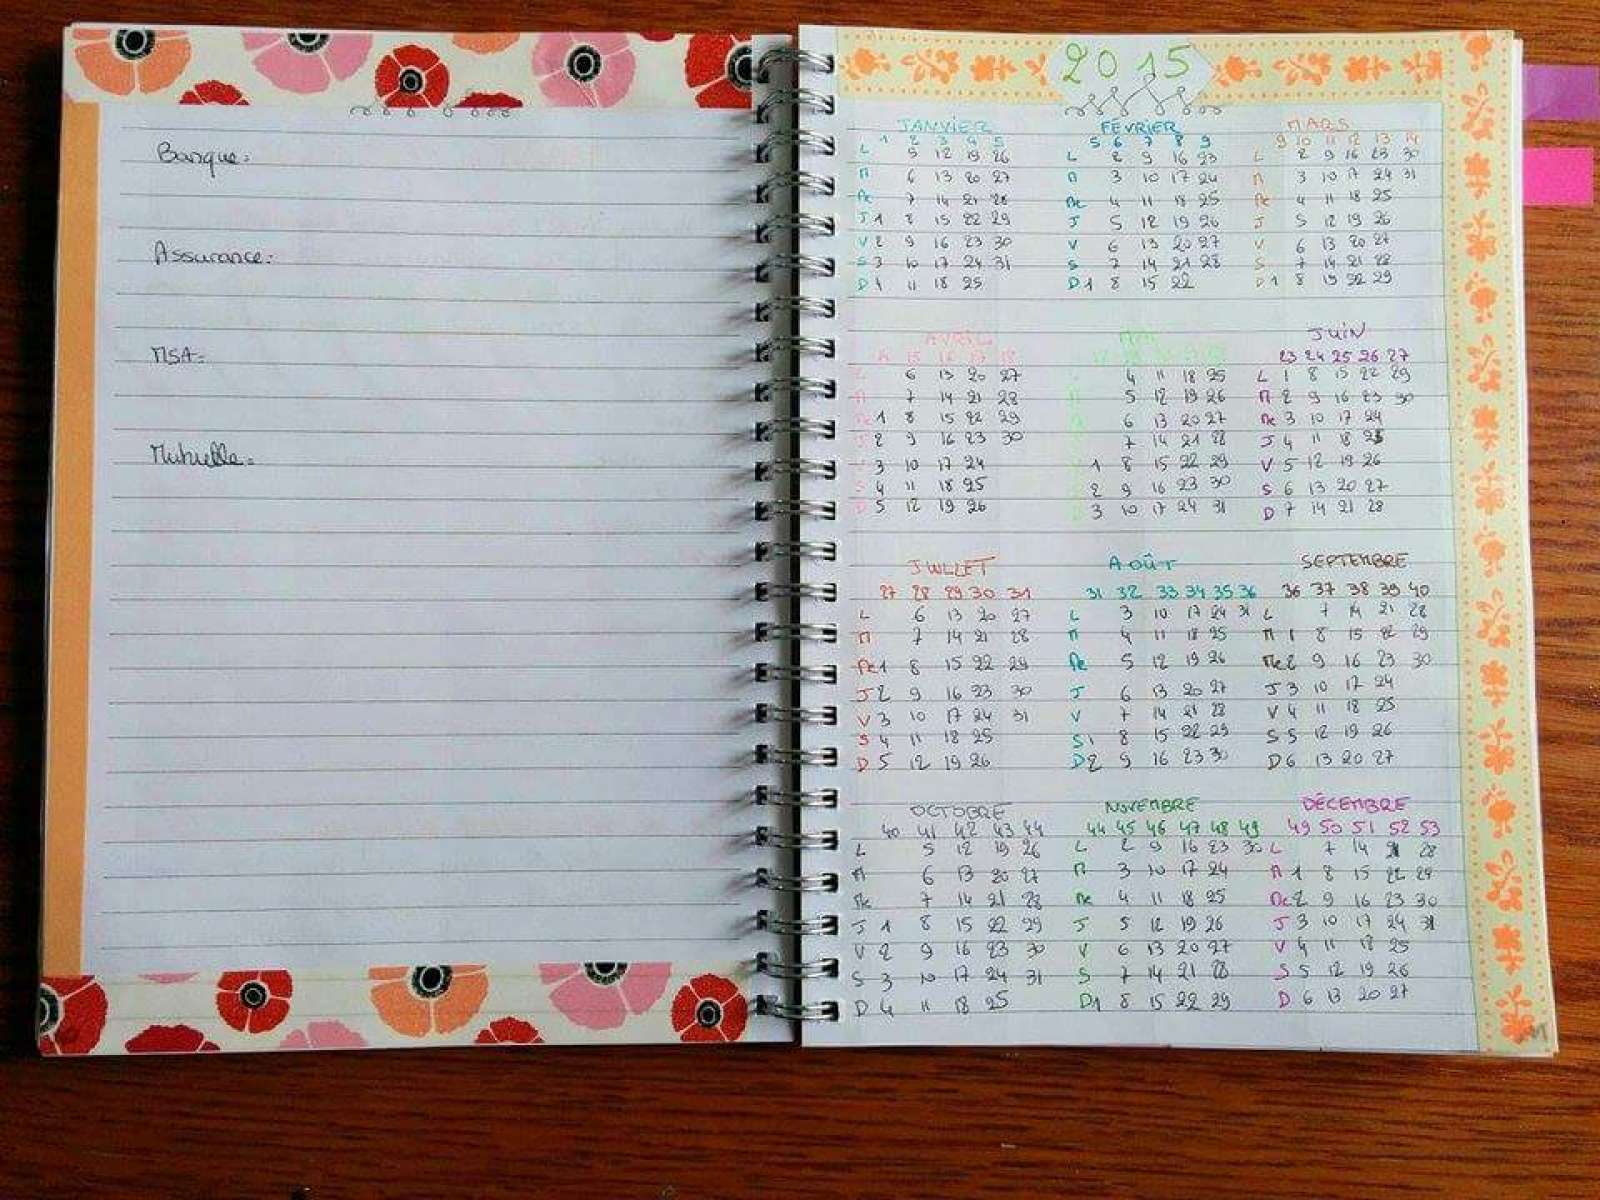 Banque:
Assurance:
MSA:
Mutuelle:
2015
JANVIER FÉVRIER MARS
1 2 3 4 5 5 6 7 8 9 9 10 11 12 13 14
L 5 12 19 26 L 2 9 16 23 L 2 9 16 23 30
M 6 13 20 27 M 3 10 17 24 M 3 10 17 24 31
Me 7 14 21 28 Me 4 11 18 25 Me 4 11 18 25
J 1 8 15 22 29 J 5 12 19 26 J 5 12 19 26
V 2 9 16 23 30 V 6 13 20 27 V 6 13 20 27
S 3 10 17 24 31 S 7 14 21 28 S 7 14 21 28
D 4 11 18 25 D 1 8 15 22 D 1 8 15 22 29
AVRIL MAI JUIN
15 16 17 18 23 24 25 26 27
6 13 20 27 4 11 18 25 L 1 8 15 22 29
7 14 21 28 5 12 19 26 M 2 9 16 23 30
Me 1 8 15 22 29 6 13 20 27 Me 3 10 17 24
J 2 9 16 23 30 7 14 21 28 J 4 11 18 25
V 3 10 17 24 1 8 15 22 29 V 5 12 19 26
S 4 11 18 25 2 9 16 23 30 S 6 13 20 27
D 5 12 19 26 3 10 17 24 31 D 7 14 21 28
JUILLET AOÛT SEPTEMBRE
27 28 29 30 31 31 32 33 34 35 36 36 37 38 39 40
L 6 13 20 27 L 3 10 17 24 31 L 7 14 21 28
M 7 14 21 28 M 4 11 18 25 M 1 8 15 22 29
Me 1 8 15 22 29 Me 5 12 19 26 Me 2 9 16 23 30
J 2 9 16 23 30 J 6 13 20 27 J 3 10 17 24
V 3 10 17 24 31 V 7 14 21 28 V 4 11 18 25
S 4 11 18 25 S 1 8 15 22 29 S 5 12 19 26
D 5 12 19 26 D 2 9 16 23 30 D 6 13 20 27
OCTOBRE NOVEMBRE DÉCEMBRE
40 41 42 43 44 44 45 46 47 48 49 49 50 51 52 53
L 5 12 19 26 L 2 9 16 23 30 L 7 14 21 28
M 6 13 20 27 M 3 10 17 24 M 1 8 15 22 29
Me 7 14 21 28 Me 4 11 18 25 Me 2 9 16 23 30
J 1 8 15 22 29 J 5 12 19 26 J 3 10 17 24 31
V 2 9 16 23 30 V 6 13 20 27 V 4 11 18 25
S 3 10 17 24 31 S 7 14 21 28 S 5 12 19 26
D 4 11 18 25 D 1 8 15 22 29 D 6 13 20 27